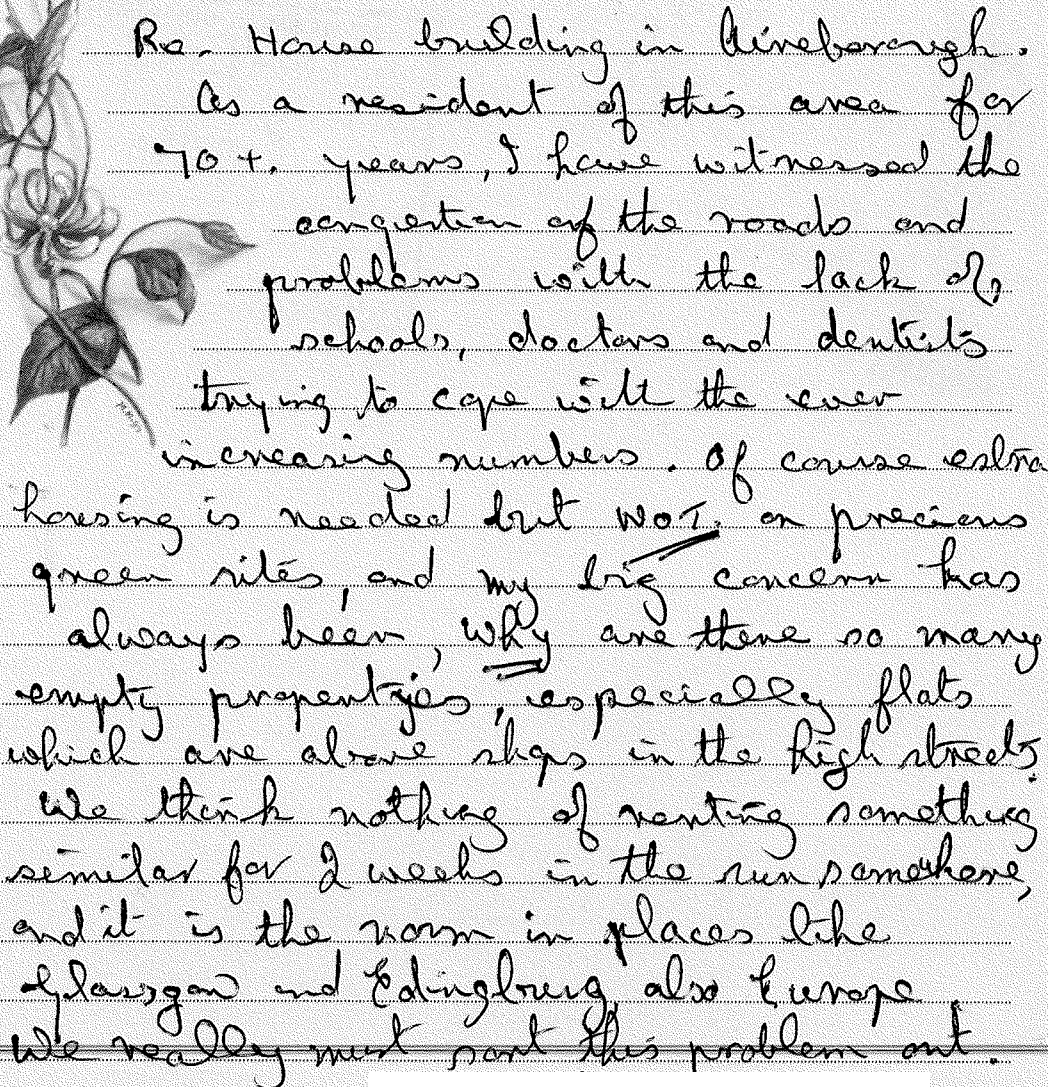 Re. House building in Aireborough.
As a resident of this area for
70 +. years, I have witnessed the
congestion of the roads and
problems with the lack of
schools, doctors and dentists
trying to cope with the ever
increasing numbers. Of course extra
housing is needed but NOT. on precious
green sites, and my big concern has
always been, why are there so many
empty properties, especially flats
which are above shops in the high streets.
We think nothing of renting something
similar for 2 weeks in the sun somewhere,
and it is the norm in places like
Glasgow and Edingburg, also Europe.
We really must sort this problem out.